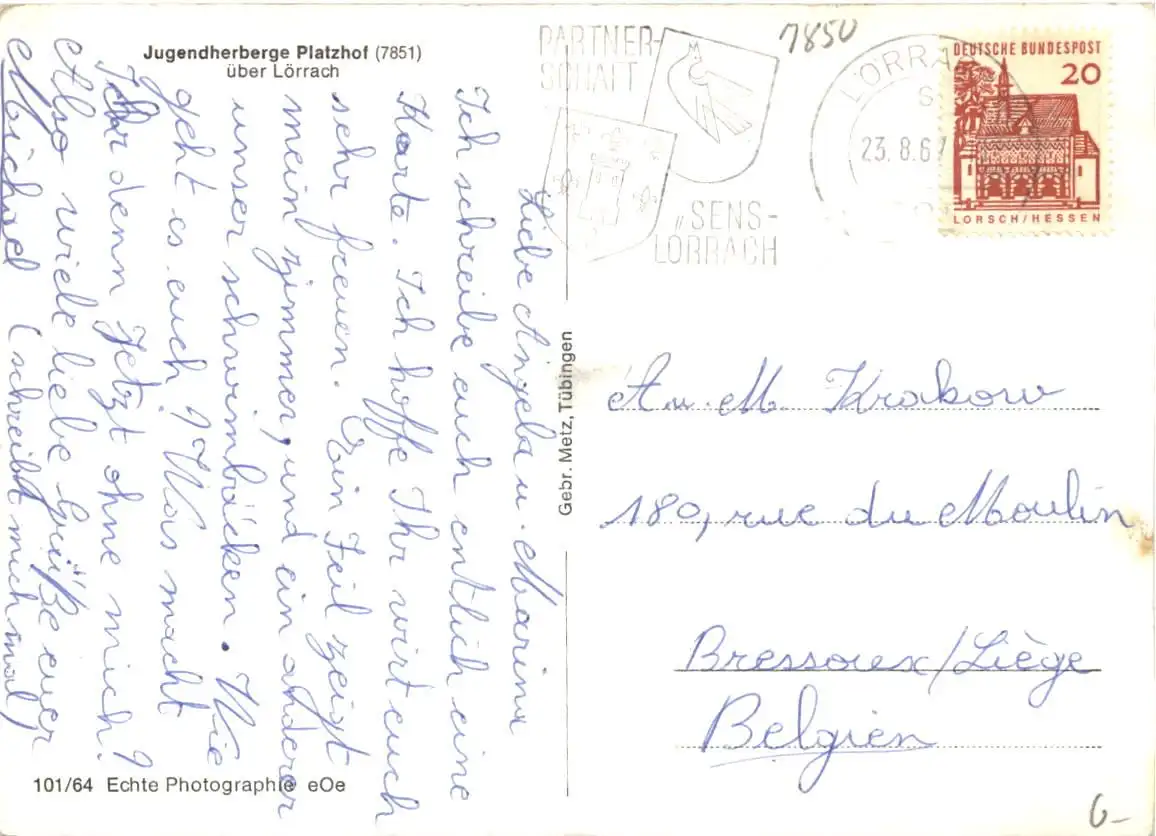 Jugendherberge Platzhof (7851)
über Lörrach
PARTNER-
SCHAFT
"SENS-
LÖRRACH
7850
LÖRRA
23.8.67
DEUTSCHE BUNDESPOST
20
LORSCH/HESSEN
Liebe Angela u. Marina
Ich schreibe euch entlich eine
Karte. Ich hoffe Ihr wirt euch
sehr freuen. Ein Teil zeigt
mein zimmer, und ein anderer
unser schwimbäcken. Wie
geht es euch? Was macht
Ihr denn Jetzt ohne mich?
Also viele liebe Grüße euer
Michael (schreibt mich mal)
Gebr. Metz, Tübingen
A. u. M. Krakow
180, rue du Moulin
Bressoux/Liège
Belgien
101/64 Echte Photographie eOe
6-